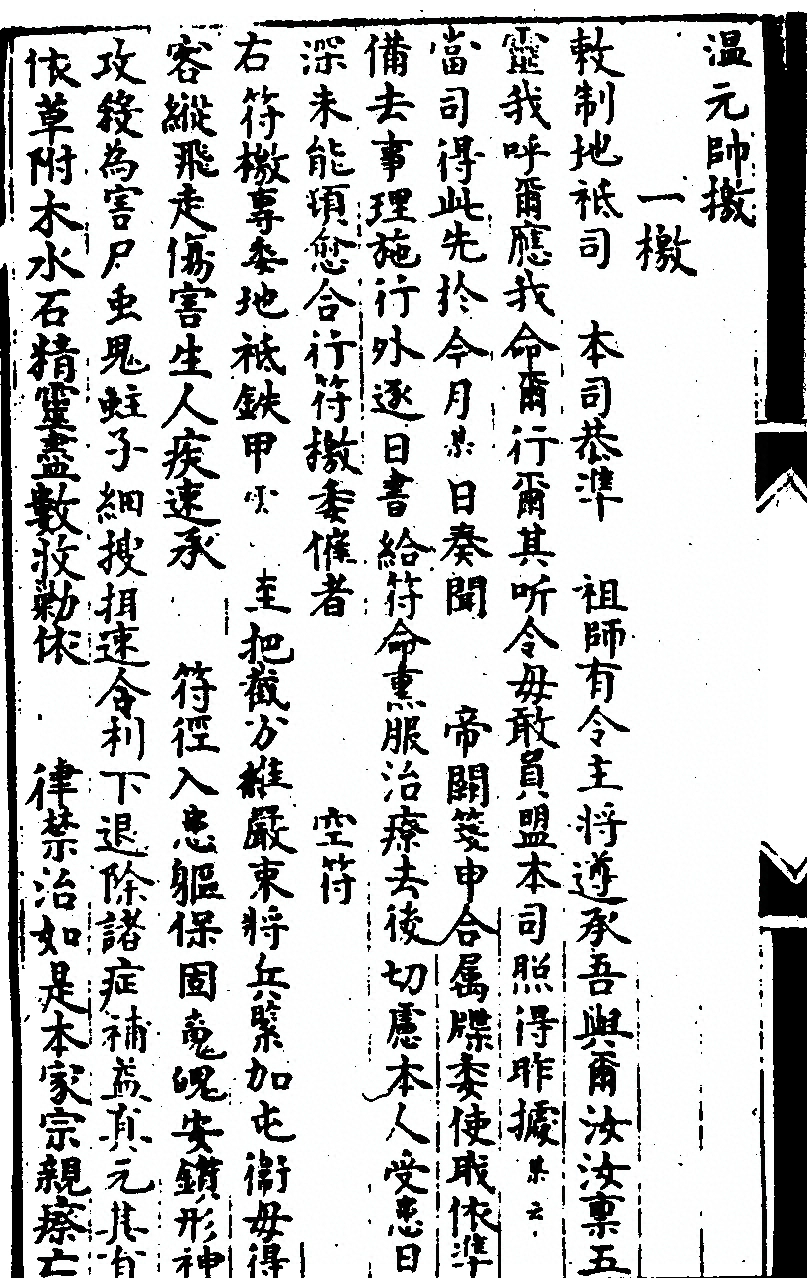 温元帥檄
一檄
敕制地祇司　本司恭準　祖師有令主將遵承吾與爾汝汝稟五
靈我呼爾應我命爾行爾其听令毋敢負盟本司照得昨據某云
當司得此先於今月某日奏聞　帝闕箋申合属牒委使職依準
備去事理施行外逐日書給符命熏服治療去後切慮本人受患日
深未能頊愈合行符檄委僱者　空符
右符檄專委地祇鉄甲　主把截分離嚴束將兵緊加屯衞毋得
容縱飛走傷害生人疾速承　符徑入患軀保固魂魄安鎮形神
攻殺為害尸虫鬼蛀子細搜捐速令利下退除諸症補益真元其有
依草附木水石精靈盡數收勦依　律禁治如是本家宗親瘵亡